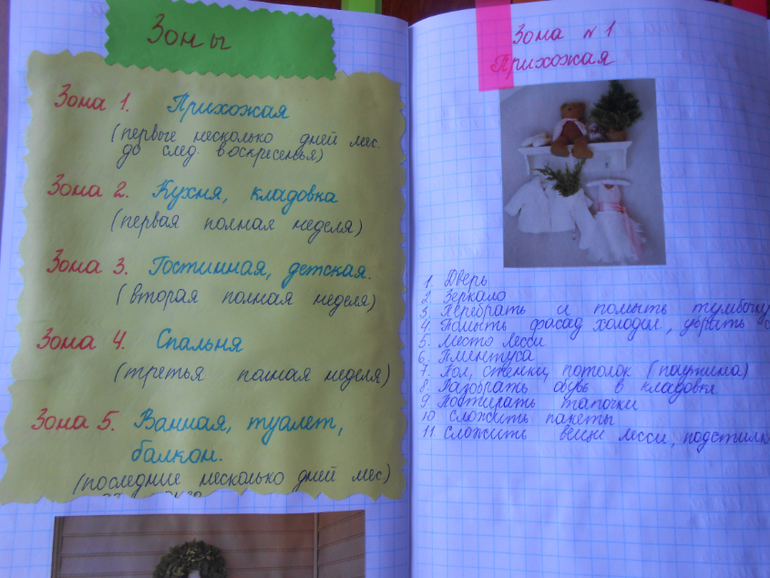 Зоны
Зона 1. Прихожая
(первые несколько дней мес.
до след воскресенья)
Зона 2. Кухня, кладовка
(первая полная неделя)
Зона 3. Гостинная, детская.
(вторая полная неделя)
Зона 4. Спальня
(третья полная неделя)
Зона 5. Ванная, туалет,
балкон.
(последние несколько дней мес)
Зона №1
Прихожая
1. Дверь
2. Зеркало
3. Перебрать и помыть тумбочку
4. Помыть фасад холодил, убрать
5. Место Лесси
6. Плинтуса
7. Пол, стенки, потолок (паутина)
8. Разобрать обувь в кладовке
9. Постирать тапочки
10 Сложить пакеты
11. Сложить вещи Лесси, подстилк